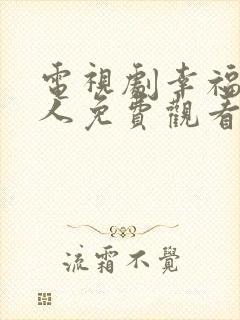 電視劇幸福
人免費觀看
流霜不覺